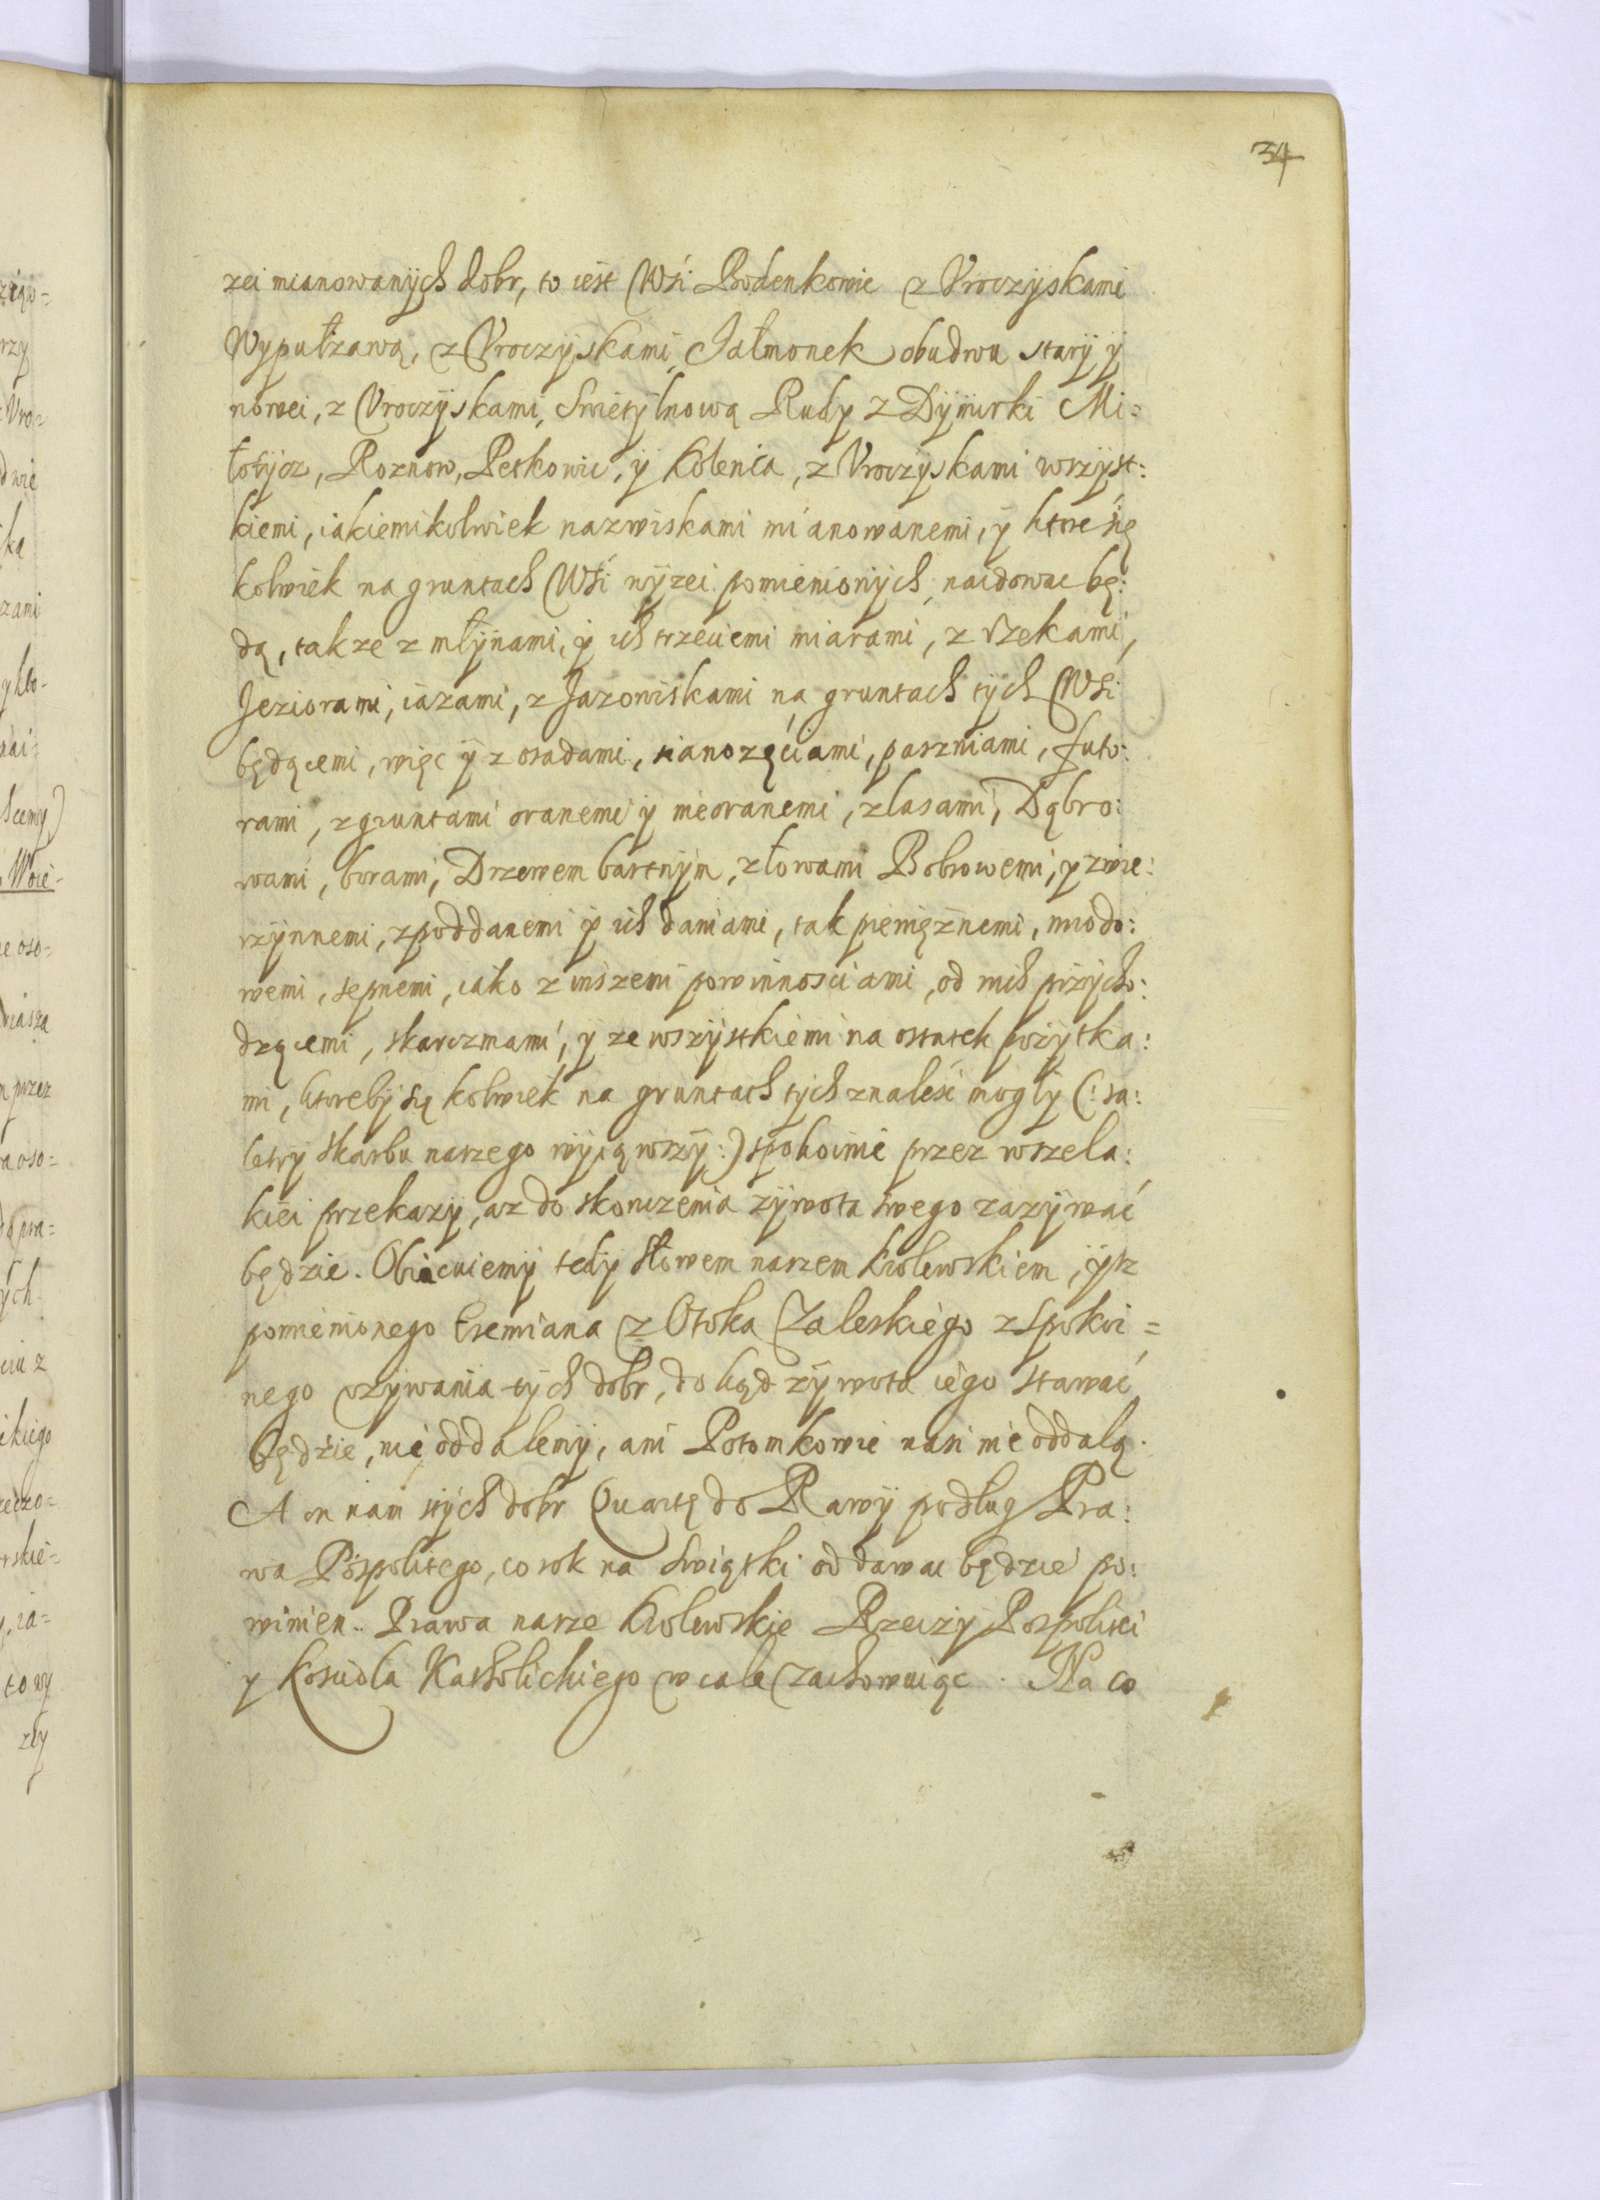 34
zei mianowanÿch dobr, to iest Wśi Rodenkowie z Vroczÿskami
Wyputzawą, z Vroczÿskami, Jałmonek obudwu starÿ ÿ
nowei, z Vroczÿskami, Smetÿlnową Rudy z Dÿmirki Mi=
łotycz, Roznow, Petkowic, ÿ Kolenia, z Vroczÿskami wszÿst:
kiemi, iakiemikolwiek nazwiskami mianowanemi, ÿ ktore się
kolwiek na gruntach Wśi nÿzei pomienionÿch, naidowac bę:
dą, takze z młÿnami, ÿ ich trzeciemi miarami, z rzekami,
Jeziorami, iazami, z Jazowiskami na gruntach tÿch Wśi
będącemi, więc ÿ z osadami, sianozęciami, paszniami, futo:
rami, z gruntami oranemi ÿ nieoranemi, z lasami, Dąbro:
wami, borami, Drzewem bartnÿm, z łowami Bobrowemi, ÿ zwie:
rzÿnnemi, z poddanemi ÿ ich daniami, tak pienięznemi, miodo:
wemi, sepnemi, iako z inszemi powinnosciami, od nich przÿcho:
dzącemi, skarczmami, ÿ ze wszÿstkiemi na ostatek pozÿtka:
mi, ktorebÿ się kolwiek na gruntach tÿch znaleśc mogłÿ (: sa:
letrÿ skarbu naszego wÿiąwszÿ :) spokoinie przez wszela:
kiei przekazÿ, az do skonczenia zÿwota swego zazÿwać
będzie. Obiecuiemÿ tedÿ słowem naszem krolewskiem, ÿsz
pomienionego Eremiana z Otoka Zaleskiego z spokoi=
nego vzÿwania tÿch dobr, dokąd zÿwota iego stawać
będzie, nie oddalemÿ, ani Potomkowie nasi nie oddalą.
A on nam stÿch dobr Quartę do Rawÿ podług Pra:
wa Pospolitego, co rok na Swiątki oddawac będzie po:
winien. Prawa nasze Krolewskie Rzeczÿ Pospolitei
y Kosciola Katholickiego w cale zachowuiąc. Na co